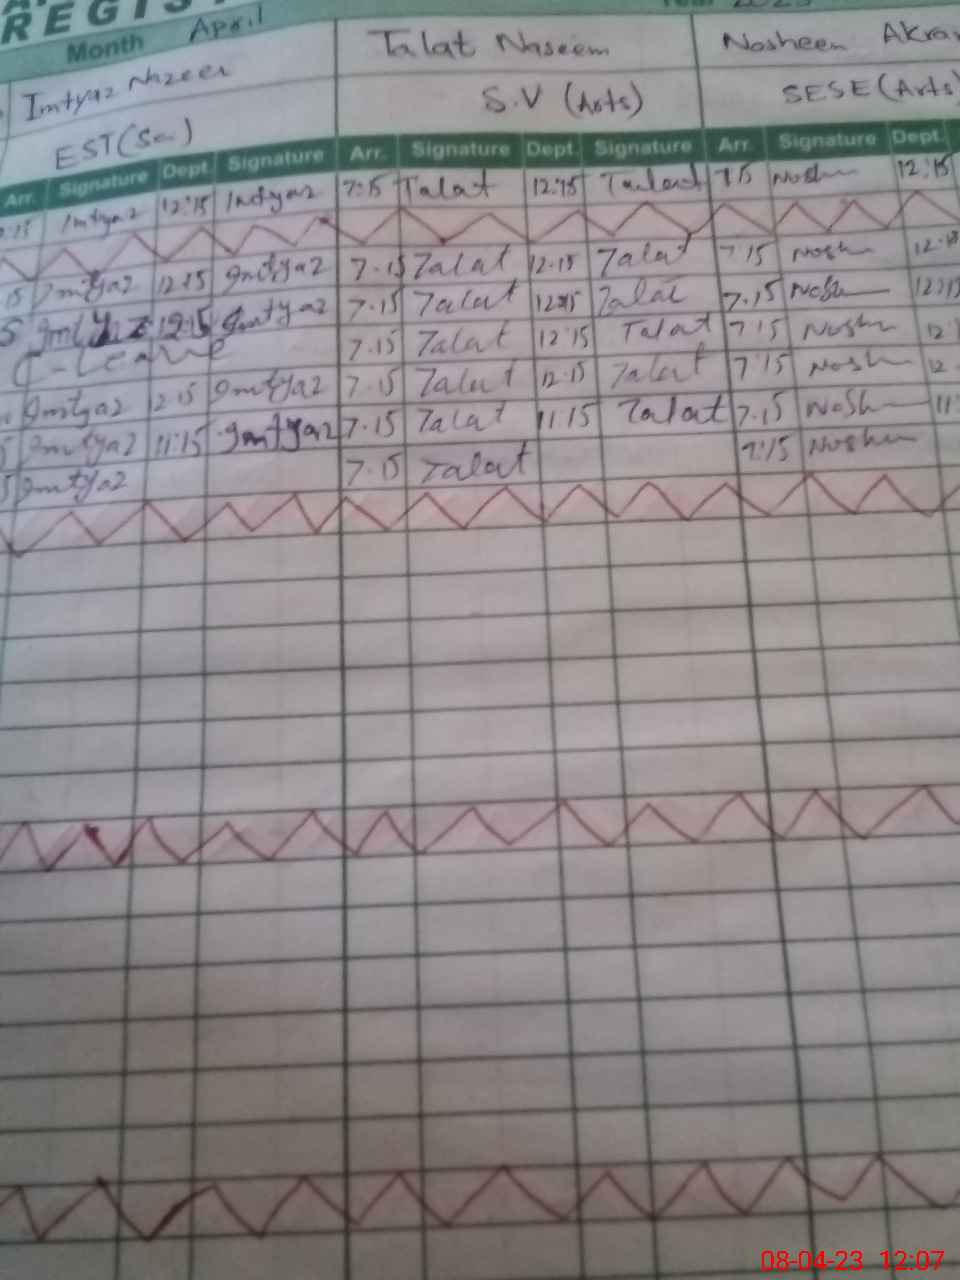 REGIST
Month April Year 2023
Imtyaz Nazeer Talat Naseem Nosheen Akra
EST(Sc) S.V (Arts) SESE (Arts)
Arr. Signature Dept. Signature Arr. Signature Dept. Signature Arr. Signature Dept.
:15 Imtyaz 12:15 Imtyaz 7:15 Talat 12:15 Talat 7 15 Nosh 12:15
15 Imtyaz 12:15 Imtyaz 7.15 Talat 12.15 Talat 7 15 Nosh 12:15
5 Imtyaz 12:15 Imtyaz 7.15 Talat 12:15 Talat 7.15 Nosh 12:15
C-Leave 7.15 Talat 12:15 Talat 7:15 Nosh 12:
Imtyaz 12:15 Imtyaz 7.15 Talat 12:15 Talat 7:15 Nosh 12.
5 Imtyaz 11:15 Imtyaz 7.15 Talat 11:15 Talat 7.15 Nosh 11:
5 Imtyaz 7.15 Talat 7:15 Nosh
08-04-23 12:07